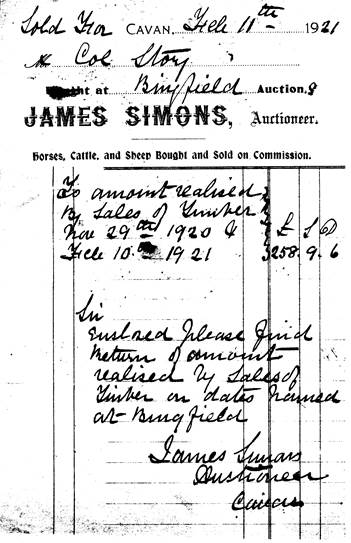 Sold For CAVAN, Feb 11th 1921
M Col Story
ght at Bingfield Auction,
JAMES SIMONS, Auctioneer.
Horses, Cattle, and Sheep Bought and Sold on Commission.
To amount realised
By Sales of Timber
Nov 29th 1920 & £ S D
Feb 10th 1921 258. 9. 6
Sir
Enclosed please find
Return of amount
realised by Sales of
Timber on dates named
at Bingfield
James Simons
Auctioneer
Cavan